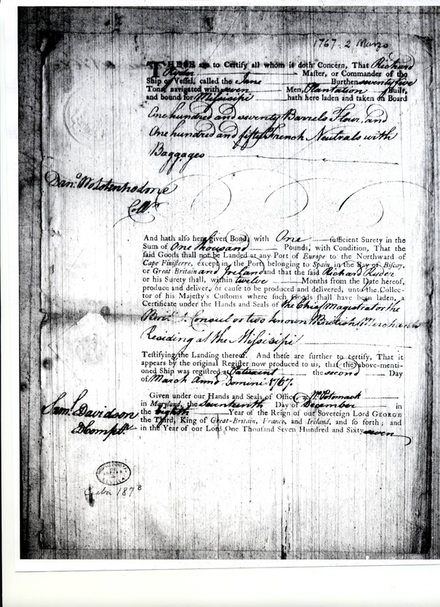 1767 - 2 Marzo
THESE are to Certify all whom it doth Concern, That Richard
Ryder Master, or Commander of the
Ship or Vessel, called the Jane Burthen seventy five
Tons, navigated with seven Men, Plantation Built,
and bound for Missisipi hath here laden and taken on Board
One hundred and seventy Barrels Flour, and
One hundred and fifty French Neutrals with
Baggages
Danl. Wolstenholme
Collr.
And hath also here given Bond, with One sufficient Surety in the
Sum of One thousand Pounds, with Condition, That the
said Goods shall not be Landed at any Port of Europe to the Northward of
Cape Finisterre, except in the Ports belonging to Spain in the Bay of Biscay,
or Great Britain and Ireland and that the said Richard Ryder
or his Surety shall, within twelve Months from the Date hereof,
produce and deliver, or cause to be produced and delivered, unto the Collec-
tor of his Majesty's Customs where such Goods shall have been laden, a
Certificate under the Hands and Seals of the Chief Magistrate or the
Consul or two known British Merchants
Residing at the Missisipi
Testifying the Landing thereof. And these are further to certify, That it
appears by the original Register now produced to us, that the above-menti-
oned Ship was registered at the second Day
of March Anno Domini 1767.
Given under our Hands and Seals of Office, Nº Potomack
in Maryland, the Seventeenth Day of December in
the Eighth Year of the Reign of our Sovereign Lord GEORGE
the Third, King of Great-Britain, France, and Ireland, and so forth; and
in the Year of our Lord One Thousand Seven Hundred and Sixty seven
Saml. Davidson